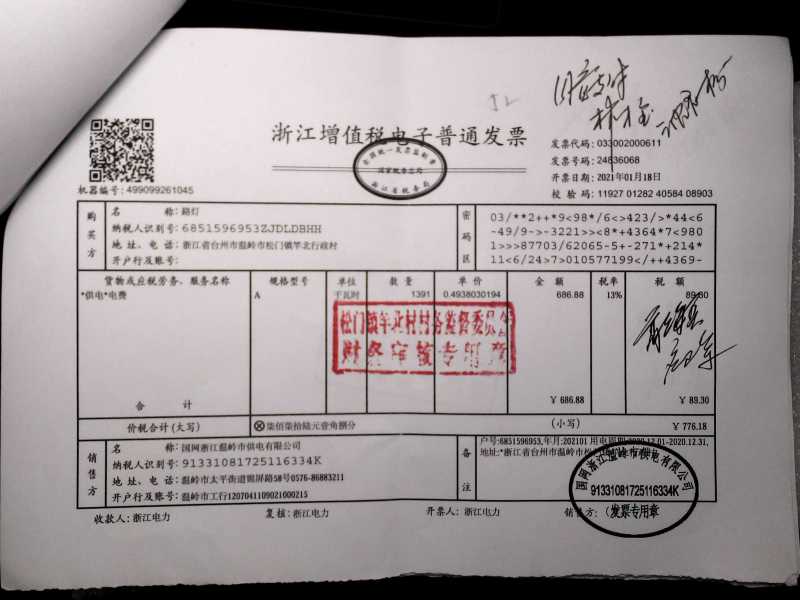 浙江增值税电子普通发票
全国统一发票监制章
国家税务总局
浙江省税务局
机器编号: 499099261045
发票代码: 033002000611
发票号码: 24836068
开票日期: 2021年01月18日
校 验 码: 11927 01282 40584 08903
购买方
名 称: 路灯
纳税人识别号: 6851596953ZJDLDBHH
地 址、电 话: 浙江省台州市温岭市松门镇竿北行政村
开户行及账号:
密码区
03/**2++*9<98*/6<>423/>*44<6
-49/9->-3221>><8*+4364*7<980
1>>>87703/62065-5+-271*+214*
11<6/24>7>010577199</++4369-
货物或应税劳务、服务名称 规格型号 单位 数 量 单 价 金 额 税率 税 额
*供电*电费 A 千瓦时 1391 0.4938030194 686.88 13% 89.30
松门镇竿北村村务监督委员会
财务审核专用章
合 计 ¥ 686.88 ¥ 89.30
价税合计(大写) ⊗柒佰柒拾陆元壹角捌分 (小写) ¥ 776.18
销售方
名 称: 国网浙江温岭市供电有限公司
纳税人识别号: 91331081725116334K
地 址、电 话: 温岭市太平街道锦屏路58号0576-86883211
开户行及账号: 温岭市工行1207041109021000215
备注
户号:6851596953,年月:202101 用电周期:2020.12.01-2020.12.31,
地址:*浙江省台州市温岭市松
国网浙江温岭市供电有限公司
91331081725116334K
(发票专用章
收款人: 浙江电力 复核: 浙江电力 开票人: 浙江电力 销售方: